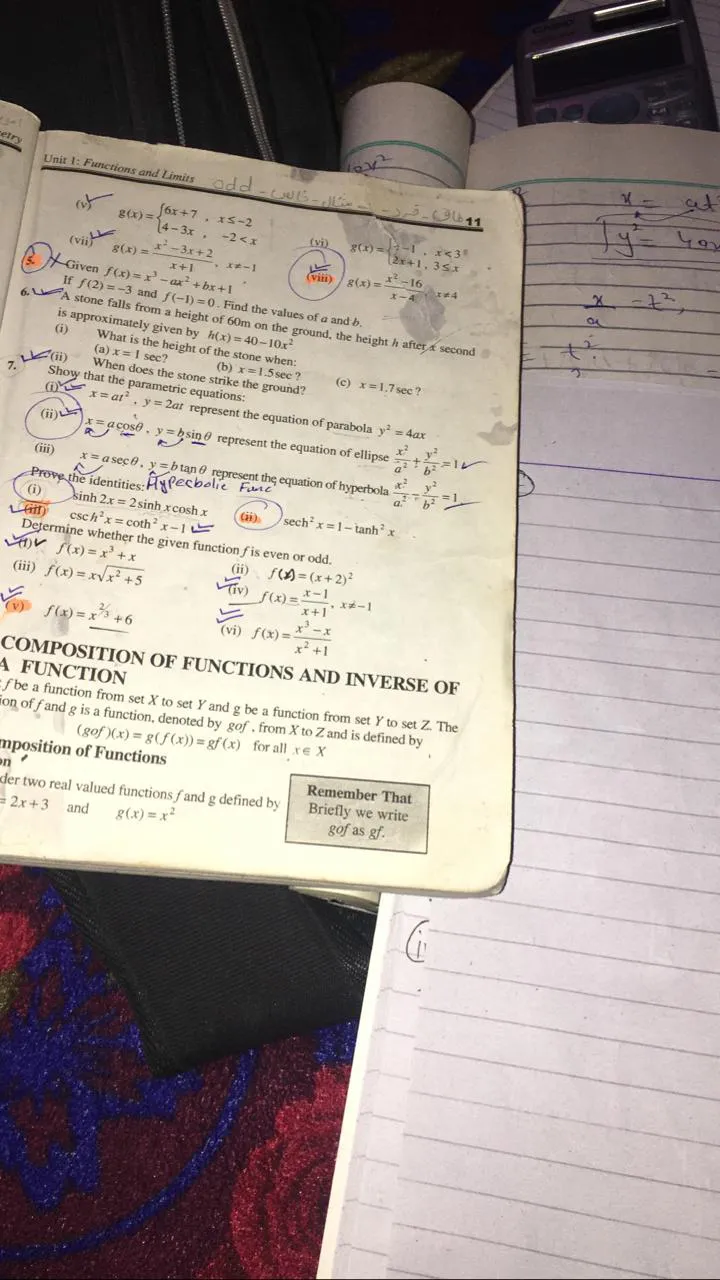 etry
Unit 1: Functions and Limits
odd
11
(v) g(x) = {6x+7 , x≤-2
4-3x , -2<x
(vi) g(x) = { -1 , x<3
2x+1 , 3≤x
(vii) g(x) = x²-3x+2 / x+1 , x≠-1
(viii) g(x) = x²-16 / x-4 , x≠4
5. Given f(x) = x³ - ax² + bx + 1
If f(2) = -3 and f(-1) = 0. Find the values of a and b.
6. A stone falls from a height of 60m on the ground, the height h after x second
is approximately given by h(x) = 40-10x²
(i) What is the height of the stone when:
(a) x = 1 sec? (b) x = 1.5 sec ? (c) x = 1.7 sec ?
(ii) When does the stone strike the ground?
7. Show that the parametric equations:
(i) x = at² , y = 2at represent the equation of parabola y² = 4ax
(ii) x = a cosθ , y = b sinθ represent the equation of ellipse x²/a² + y²/b² = 1
(iii) x = a secθ , y = b tanθ represent the equation of hyperbola x²/a² - y²/b² = 1
Prove the identities: Hyperbolic Func
(i) sinh 2x = 2sinh x cosh x
(ii) sech² x = 1 - tanh² x
(iii) csch² x = coth² x - 1
Determine whether the given function f is even or odd.
(i) f(x) = x³ + x
(ii) f(x) = (x+2)²
(iii) f(x) = x√x²+5
(iv) f(x) = x-1 / x+1 , x≠-1
(v) f(x) = x^2/3 + 6
(vi) f(x) = x³-x / x²+1
COMPOSITION OF FUNCTIONS AND INVERSE OF
A FUNCTION
f be a function from set X to set Y and g be a function from set Y to set Z. The
ion of f and g is a function, denoted by gof , from X to Z and is defined by
(gof)(x) = g(f(x)) = gf(x) for all x∈X
mposition of Functions
on
der two real valued functions f and g defined by
= 2x+3 and g(x) = x²
Remember That
Briefly we write
gof as gf.
x = at²
y² = 4ax
x/a = t²,
t²
(i